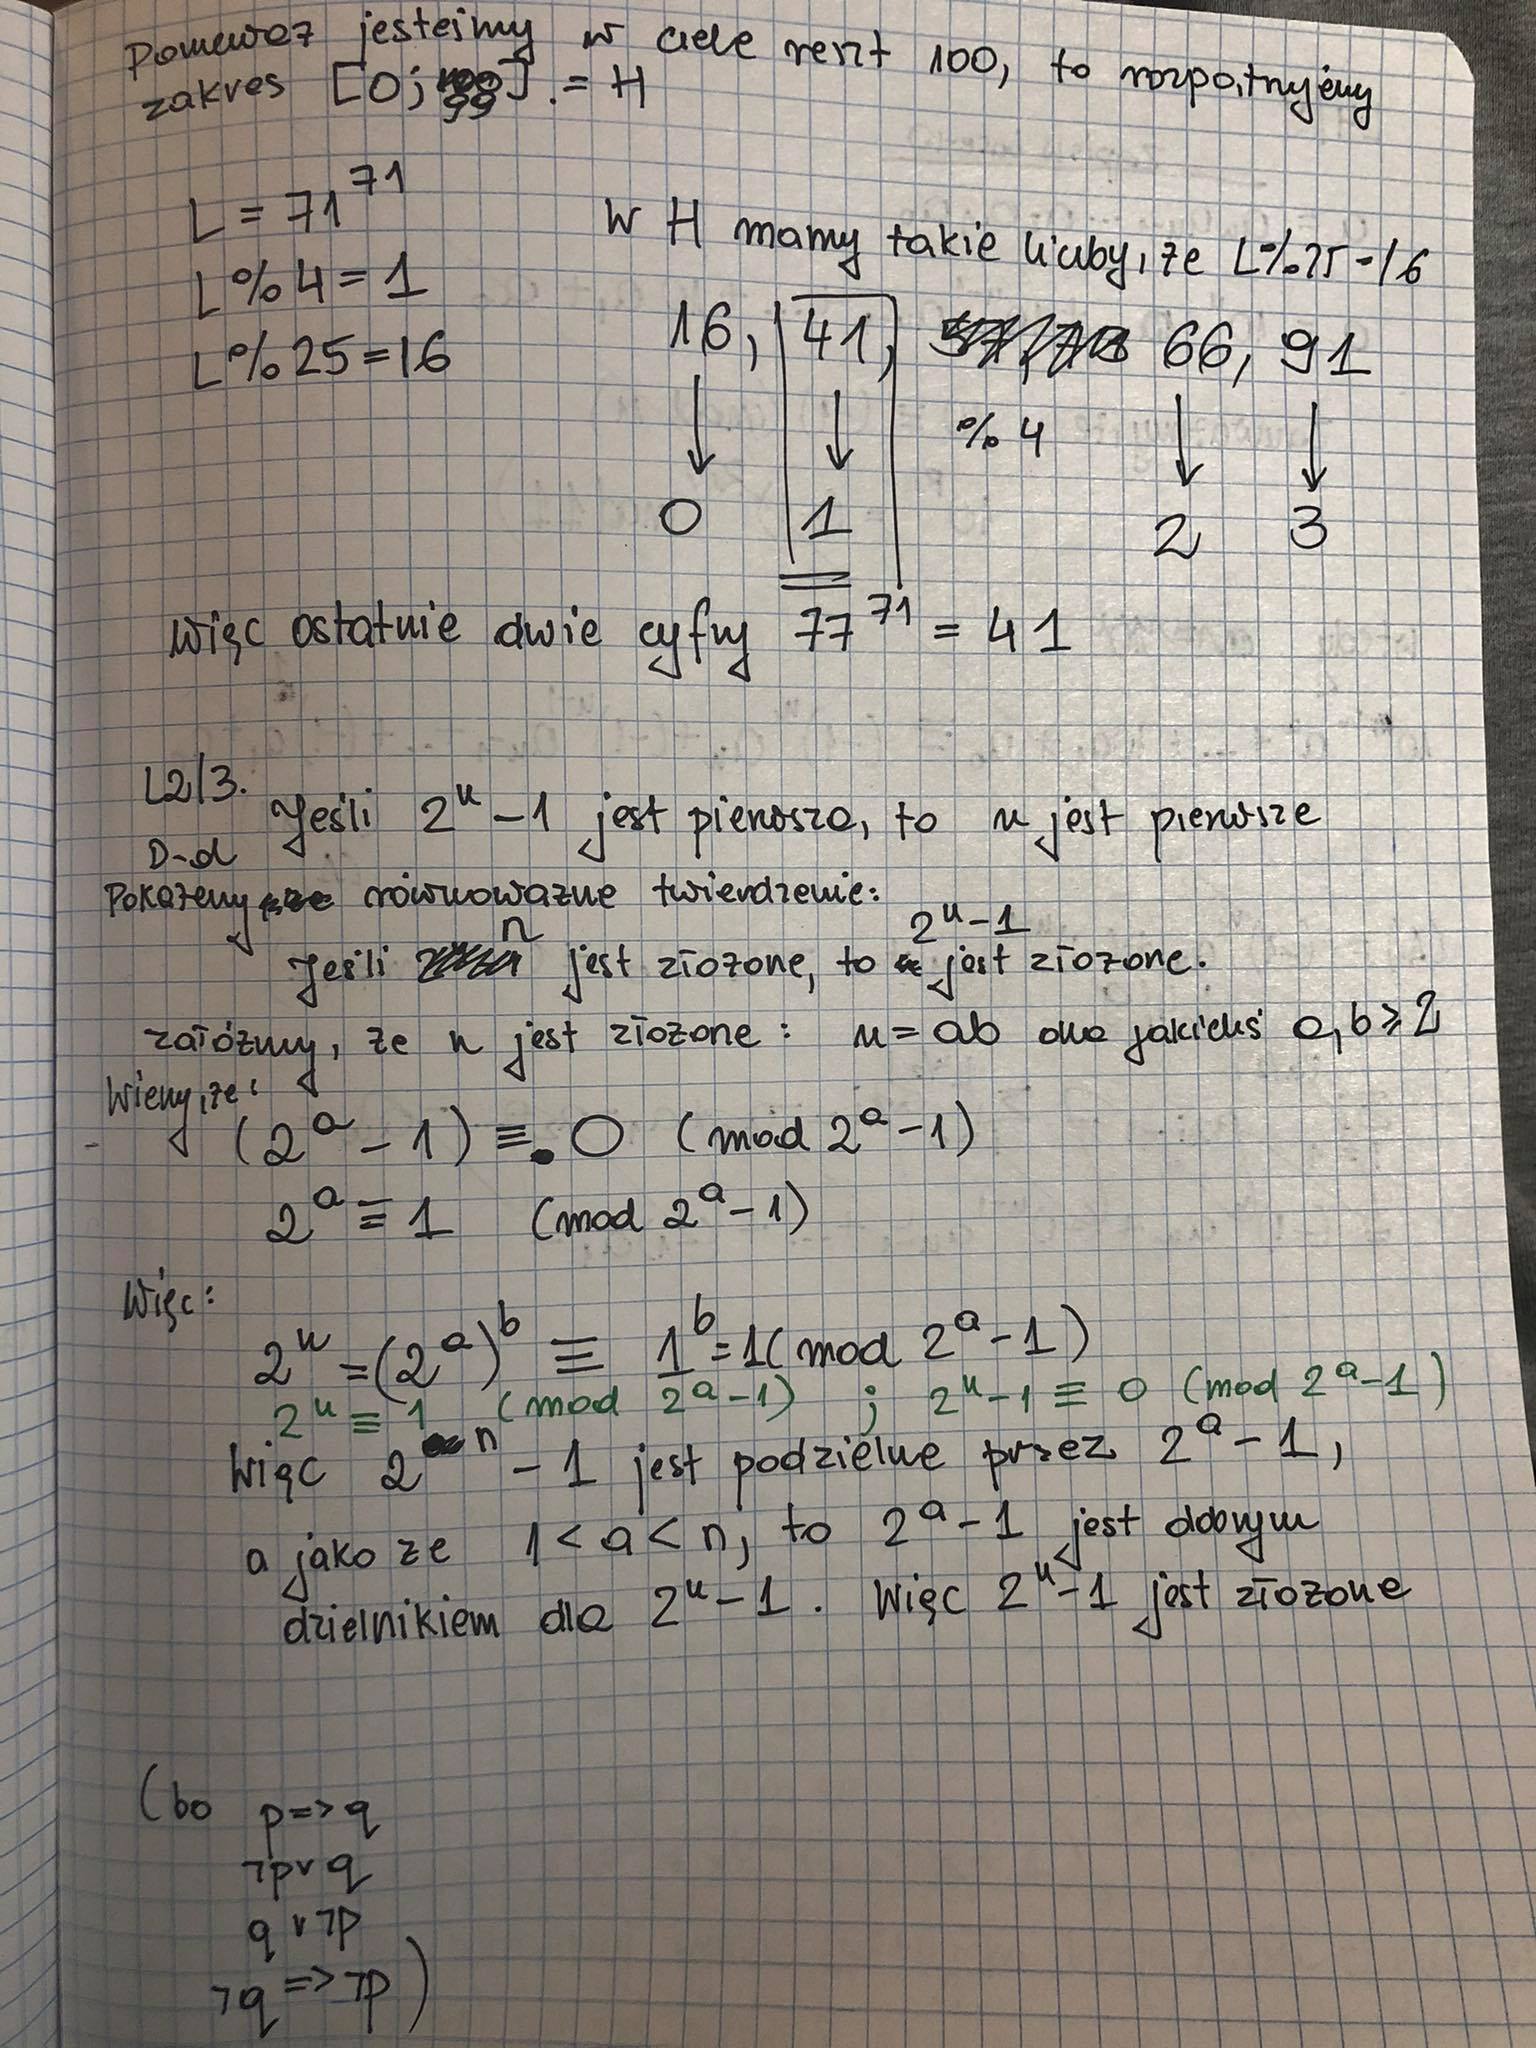 Ponieważ jesteśmy w ciele reszt 100, to rozpatrujemy
zakres [0; 99] := H
L = 71^71
L % 4 = 1
L % 25 = 16
W H mamy takie liczby, że L%25=16
16, 41, 66, 91
% 4
0 1 2 3
Więc ostatnie dwie cyfry 77^71 = 41
L2/3.
Jeśli 2^n - 1 jest pierwsza, to n jest pierwsze
D-d
Pokażemy równoważne twierdzenie:
Jeśli n jest złożone, to 2^n - 1 jest złożone.
Załóżmy, że n jest złożone: n = ab dla jakichś a, b ≥ 2
Wiemy, że:
(2^a - 1) ≡ 0 (mod 2^a - 1)
2^a ≡ 1 (mod 2^a - 1)
Więc:
2^n = (2^a)^b ≡ 1^b = 1 (mod 2^a - 1)
2^n ≡ 1 (mod 2^a - 1) ; 2^n - 1 ≡ 0 (mod 2^a - 1)
Więc 2^n - 1 jest podzielne przez 2^a - 1,
a jako że 1 < a < n, to 2^a - 1 jest dobrym
dzielnikiem dla 2^n - 1. Więc 2^n - 1 jest złożone
(bo p => q
¬p ∨ q
q ∨ ¬p
¬q => ¬p)